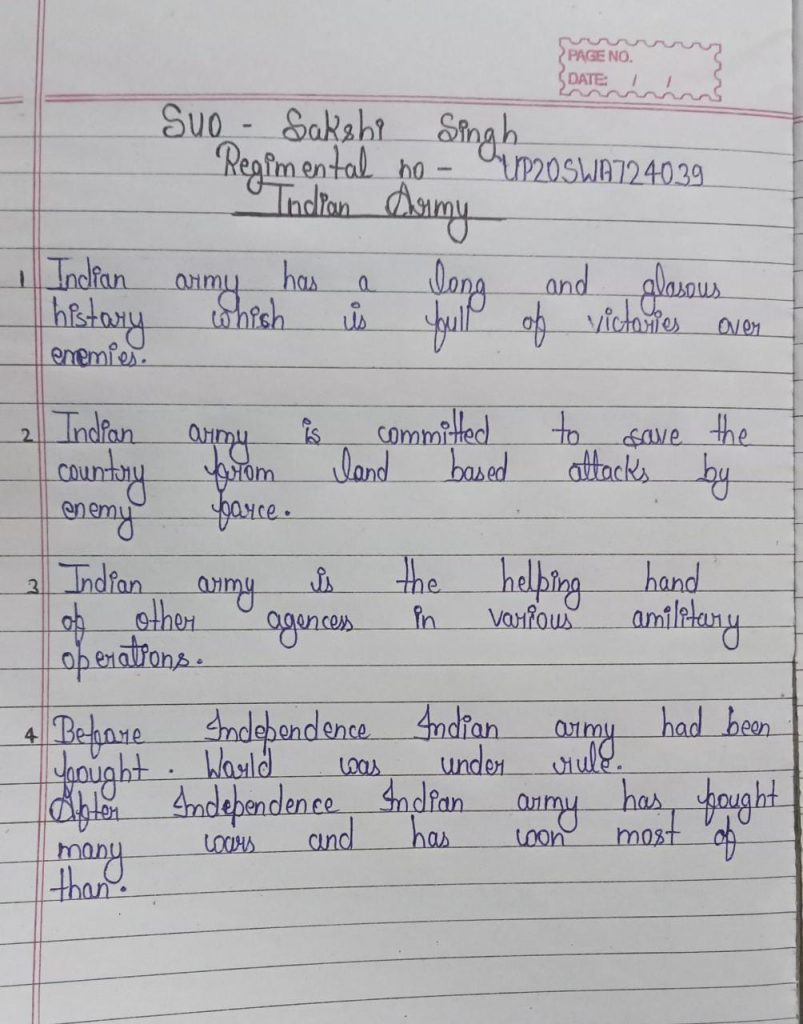 PAGE NO.
DATE: / /
SUO - Sakshi Singh
Regimental no - UP20SWA724039
Indian Army
1 Indian army has a long and glasous
histary which is full of victories over
enemies.
2 Indian army is committed to save the
country from land based attacks by
enemy farce.
3 Indian army is the helping hand
of other agences in various amilitary
operations.
4 Before Independence Indian army had been
fought. World was under rule.
After Independence Indian army has fought
many wars and has won most of
than.